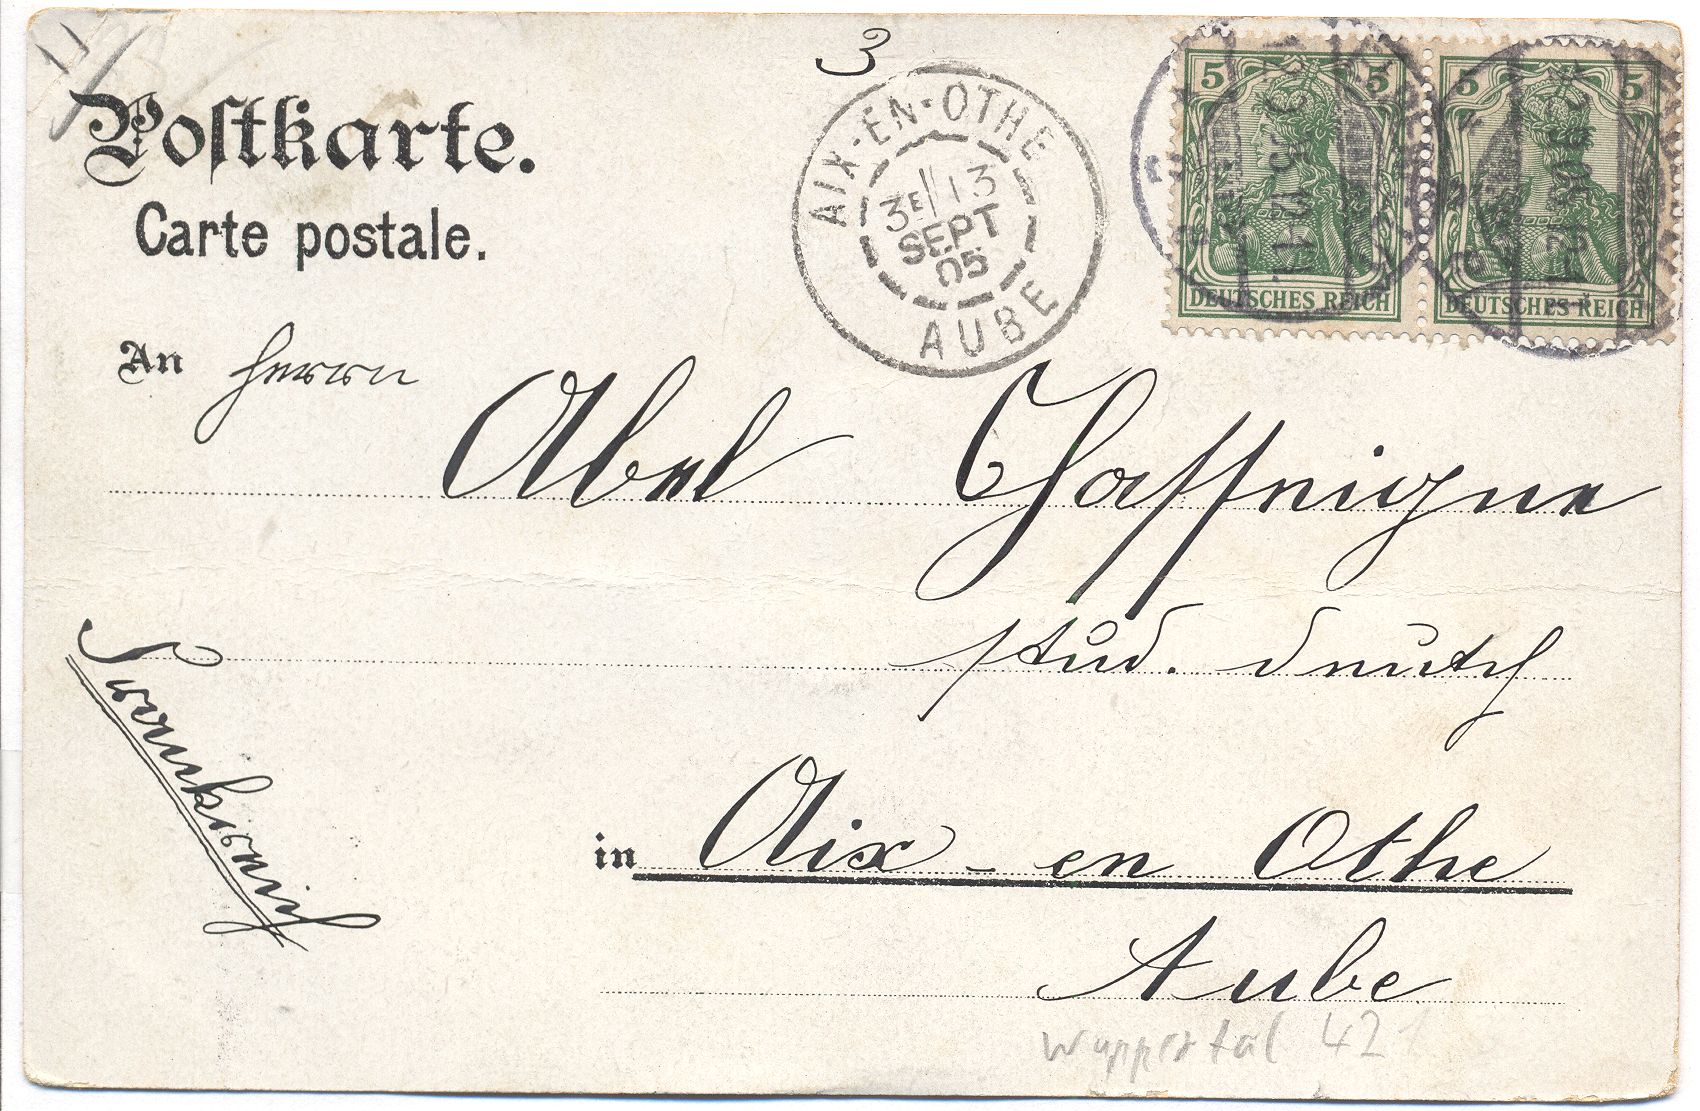 3
Postkarte.
Carte postale.
AIX-EN-OTHE
3E 13
SEPT
05
AUBE
5 5
DEUTSCHES REICH
5 5
DEUTSCHES REICH
An Herrn
Abel Chaffeigne
stud. deutsch
Frankreich
in Aix-en Othe
Aube
Wuppertal 42